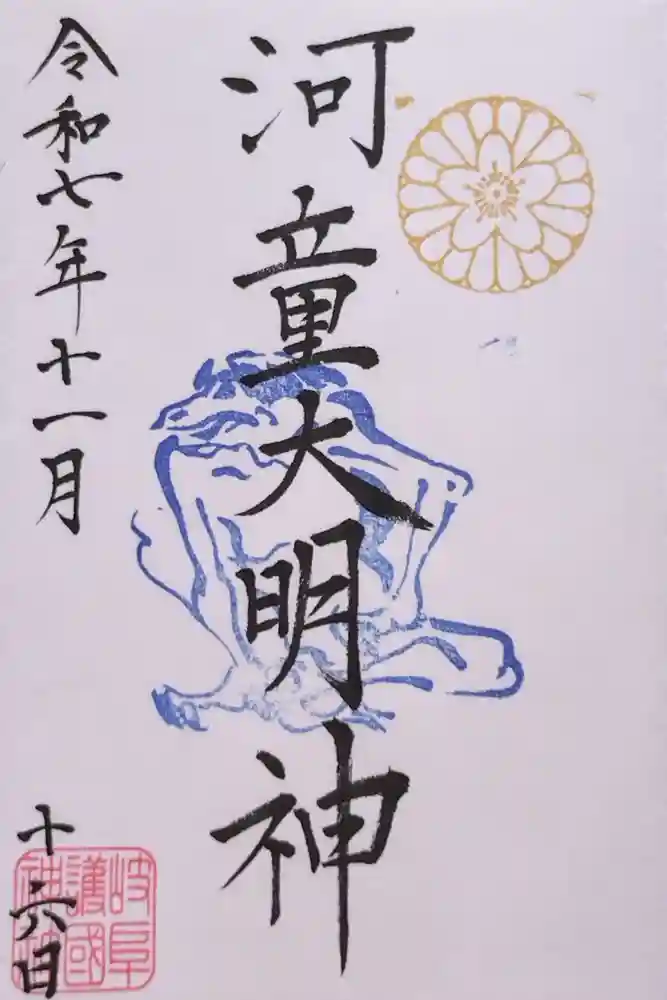 河童大明神
令和七年十一月
十六日
岐阜
護國
神社